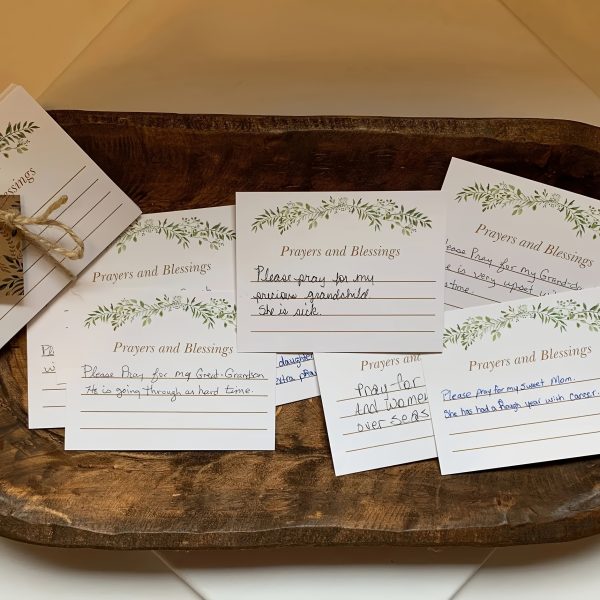 essings
Prayers and Blessings
Prayers and Blessings
Please pray for my
precious grandchild.
She is sick.
Please Pray for my Grand-
e is very upset
time.
Prayers and Blessings
Please Pray for my Great-Grandson
He is going through as hard time.
daughter
xtra pra
Prayers and Blessings
Pray for
And Women
over seas
Prayers and Blessings
Please pray for my sweet Mom.
She has had a Rough year with career.